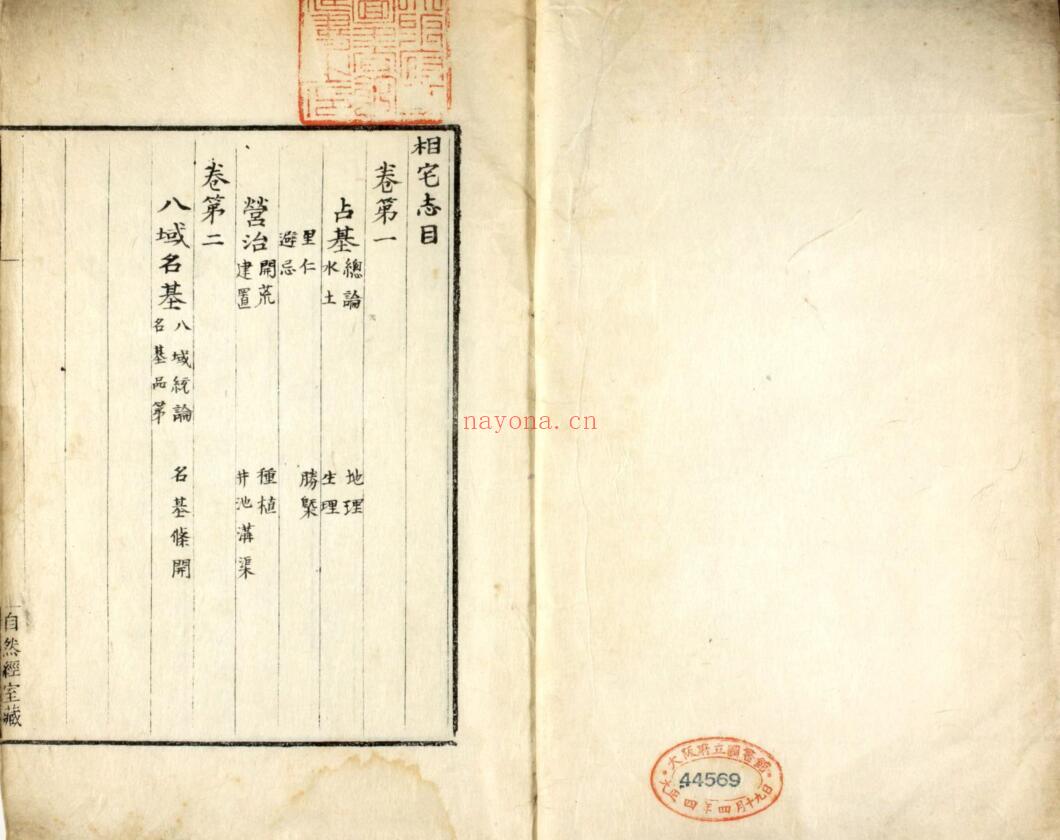 相宅志目
卷第一
占基 總論 地理
水土 生理
里仁 勝槩
避忌
營治 開荒 種植
建置 井池溝渠
卷第二
八域名基 八域統論 名基條開
名基品第
自然經室藏
nayona.cn
大阪府立圖書館
44569
大正四年四月十九日